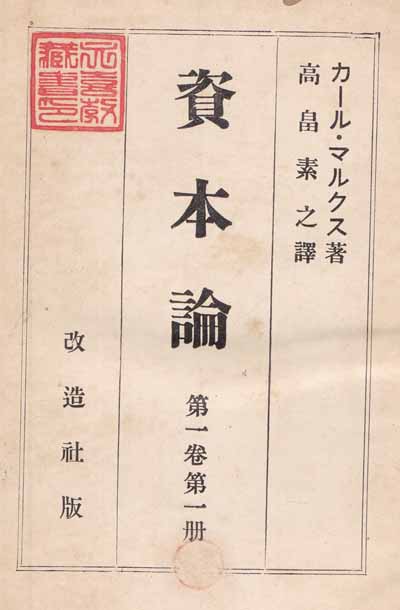 カール・マルクス著
高畠素之譯
資本論
第一卷第一册
改造社版